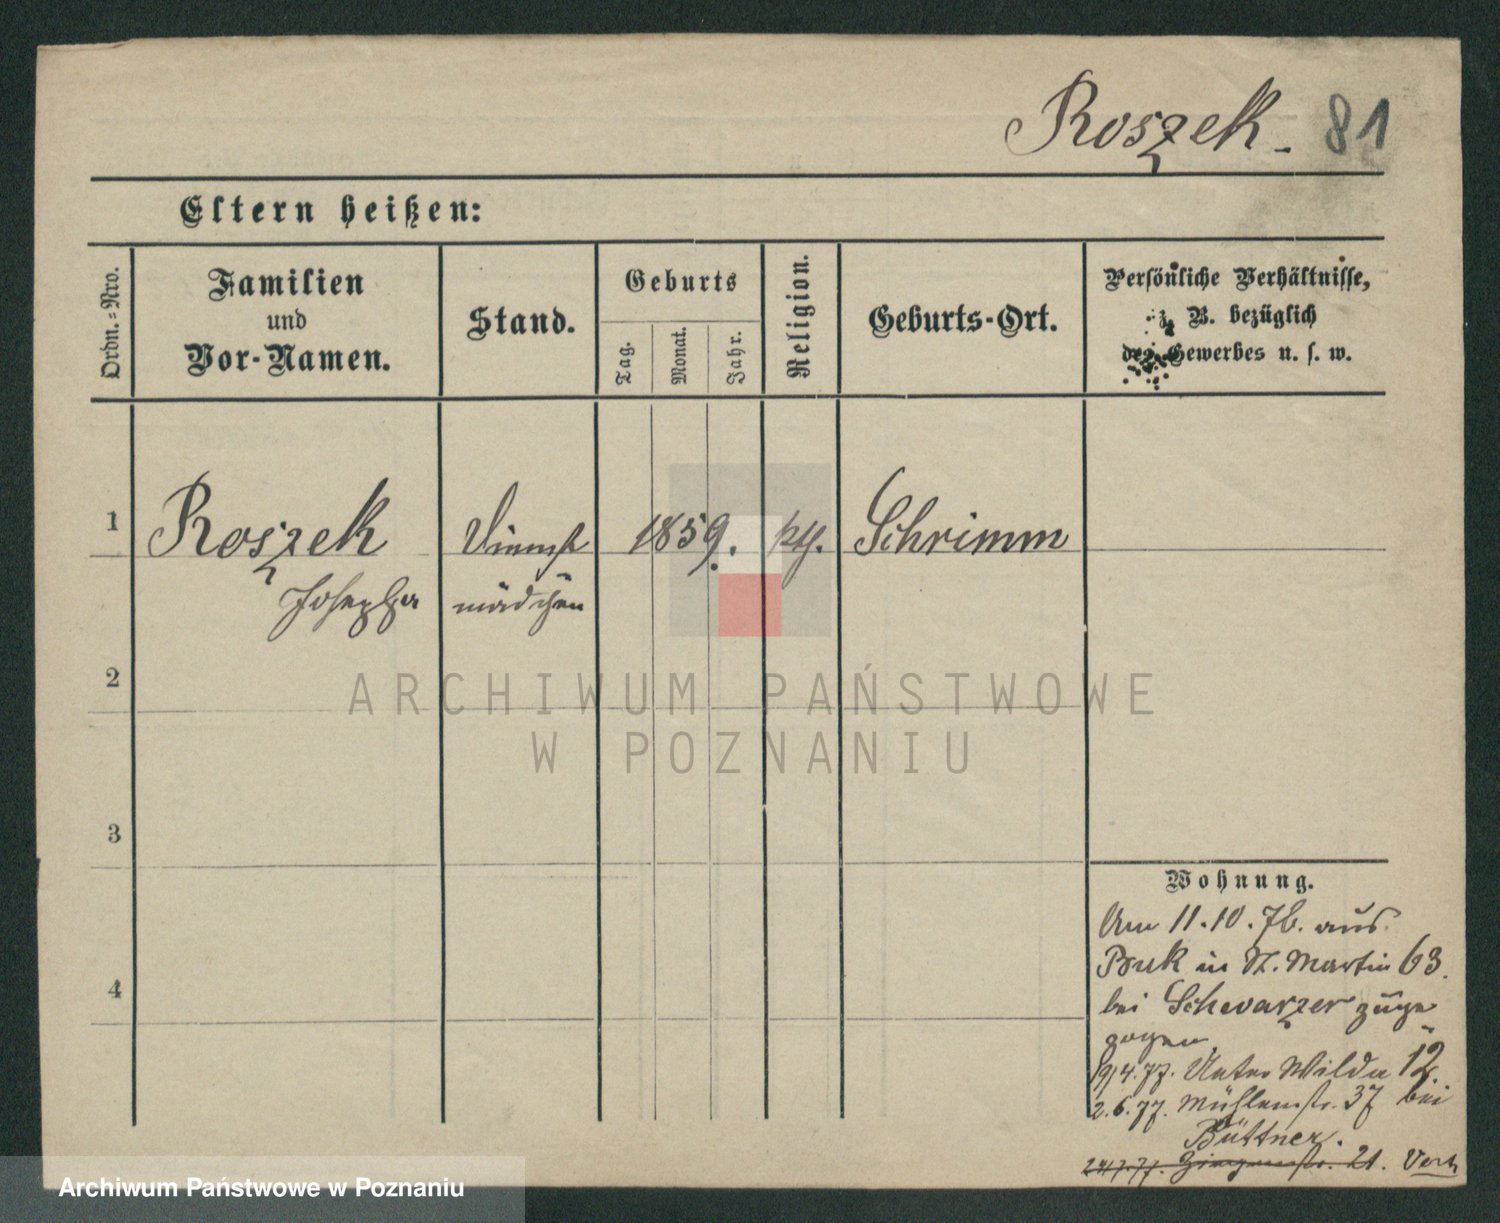 Roszek - 81
Eltern heißen:
Ordn.=Nro.
Familien
und
Vor-Namen.
Stand.
Geburts
Tag.
Monat.
Jahr.
Religion.
Geburts-Ort.
Persönliche Verhältnisse,
z. B. bezüglich
des Gewerbes u. s. w.
1 Roszek Dienst 1859. kth. Schrimm
Josepha mädchen
2
3
4
Wohnung.
Am 11.10.76. aus
Buk in St. Martin 63.
bei Schwarzer zuge
zogen.
19/4.77. Unter Wilda 12.
2.6.77. Mühlenstr. 37 bei
Büttner.
21.
ARCHIWUM PAŃSTWOWE
W POZNANIU
Archiwum Państwowe w Poznaniu